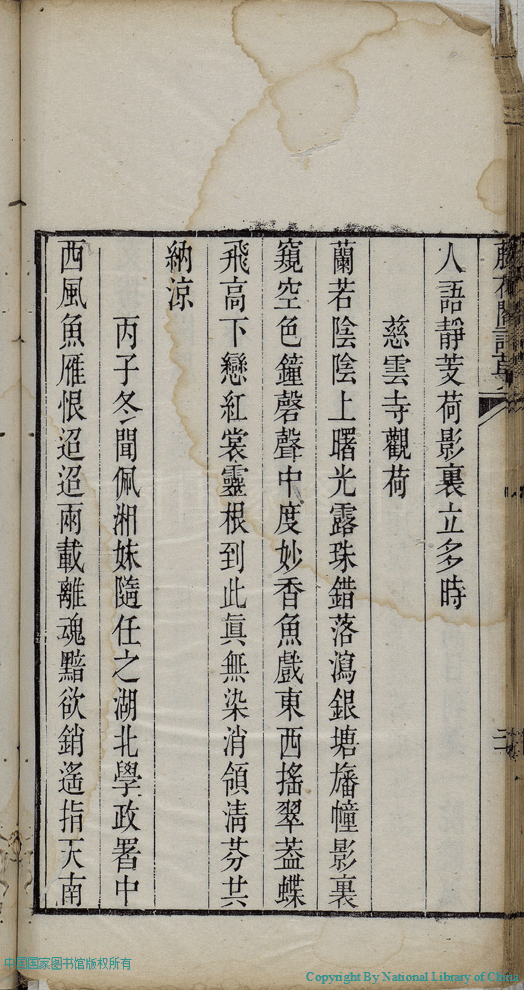 人語靜芰荷影裏立多時
慈雲寺觀荷
蘭若陰陰上曙光露珠錯落瀉銀塘旛幢影裏
窺空色鐘磬聲中度妙香魚戲東西搖翠葢蝶
飛高下戀紅裳靈根到此眞無染消領淸芬共
納涼
丙子冬聞佩湘妹隨任之湖北學政署中
西風魚雁恨迢迢兩載離魂黯欲銷遙指天南
中国国家图书馆版权所有
Copyright By National Library of China